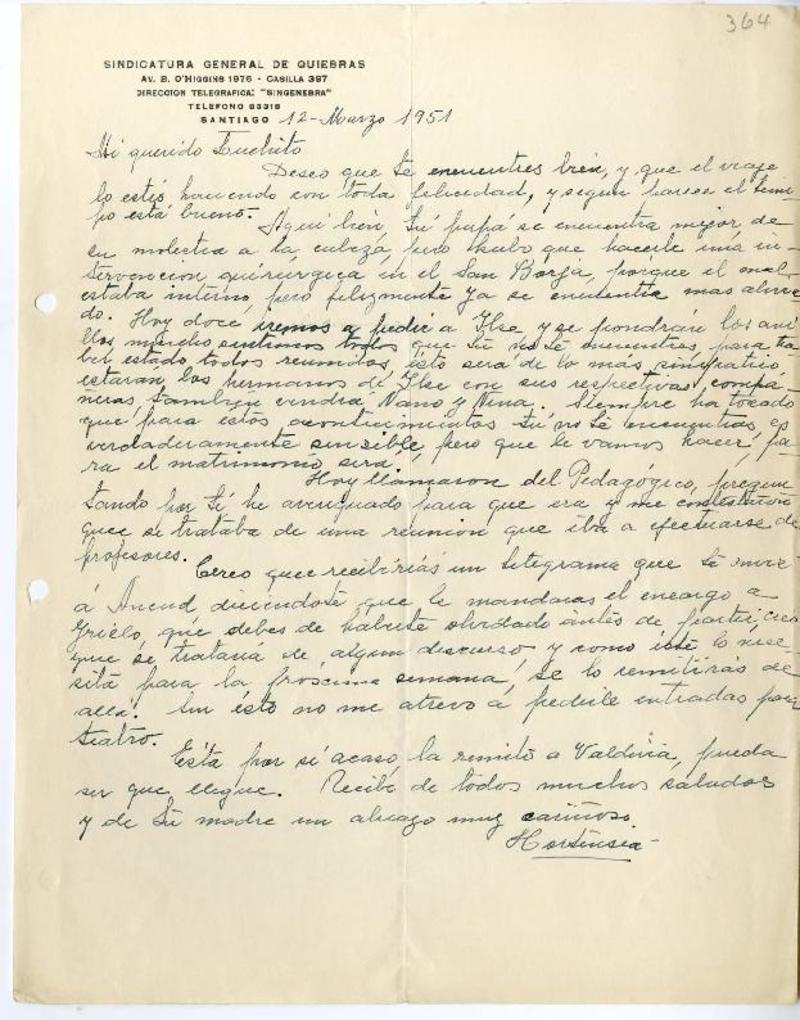 364
SINDICATURA GENERAL DE QUIEBRAS
AV. B. O'HIGGINS 1976 - CASILLA 397
DIRECCION TELEGRAFICA: "SINGENEBRA"
TELEFONO 83318
SANTIAGO 12-Marzo 1951
Mi querido Luchito
Deseo que te encuentres bien, y que el viaje
lo estés haciendo con toda felicidad, y segun parece el tiem-
po está bueno.
Aquí bien, tú papá se encuentra mejor de
su molestia a la cabeza, pero hubo que hacerle una in-
tervencion quirurgica en el San Borja, porque el mal
estaba interno, pero felizmente ya se encuentra mas alivia-
do. Hoy doce iremos a pedir a Ilse y se pondrán los ani
llos, mucho sentimos todos que tú no te encuentres, para ha-
ber estado todos reunidos, ésto será de lo más simpatico,
estaran los hermanos de Ilse con sus respectivas compa-
ñeras, tambien vendrá Nano y Nina. Siempre ha tocado
que para estos acontecimientos tú no te encuentras, es
verdaderamente sensible, pero que le vamos hacer, pa-
ra el matrimonio será.
Hoy llamaron del Pedagógico, pregun
tando por tí he averiguado para que era y me contestaron
que se trataba de una reunion que iba a efectuarse de
profesores.
Creo que recibirías un telegrama que te envie
á Ancud diciendote que le mandaras el encargo a
Grielo, que debes de haberte olvidado antes de partir, creo
que se trataria de algun discurso y como este lo nece-
sita para la proxima semana, se lo remitirás de
allá. Sin esto no me atrevo á pedirle entradas para
teatro.
Esta por si acaso, la remito a Valdivia, pueda
ser que llegue. Recibe de todos muchos saludos
y de tú madre un abrazo muy cariñoso.
Hortensia